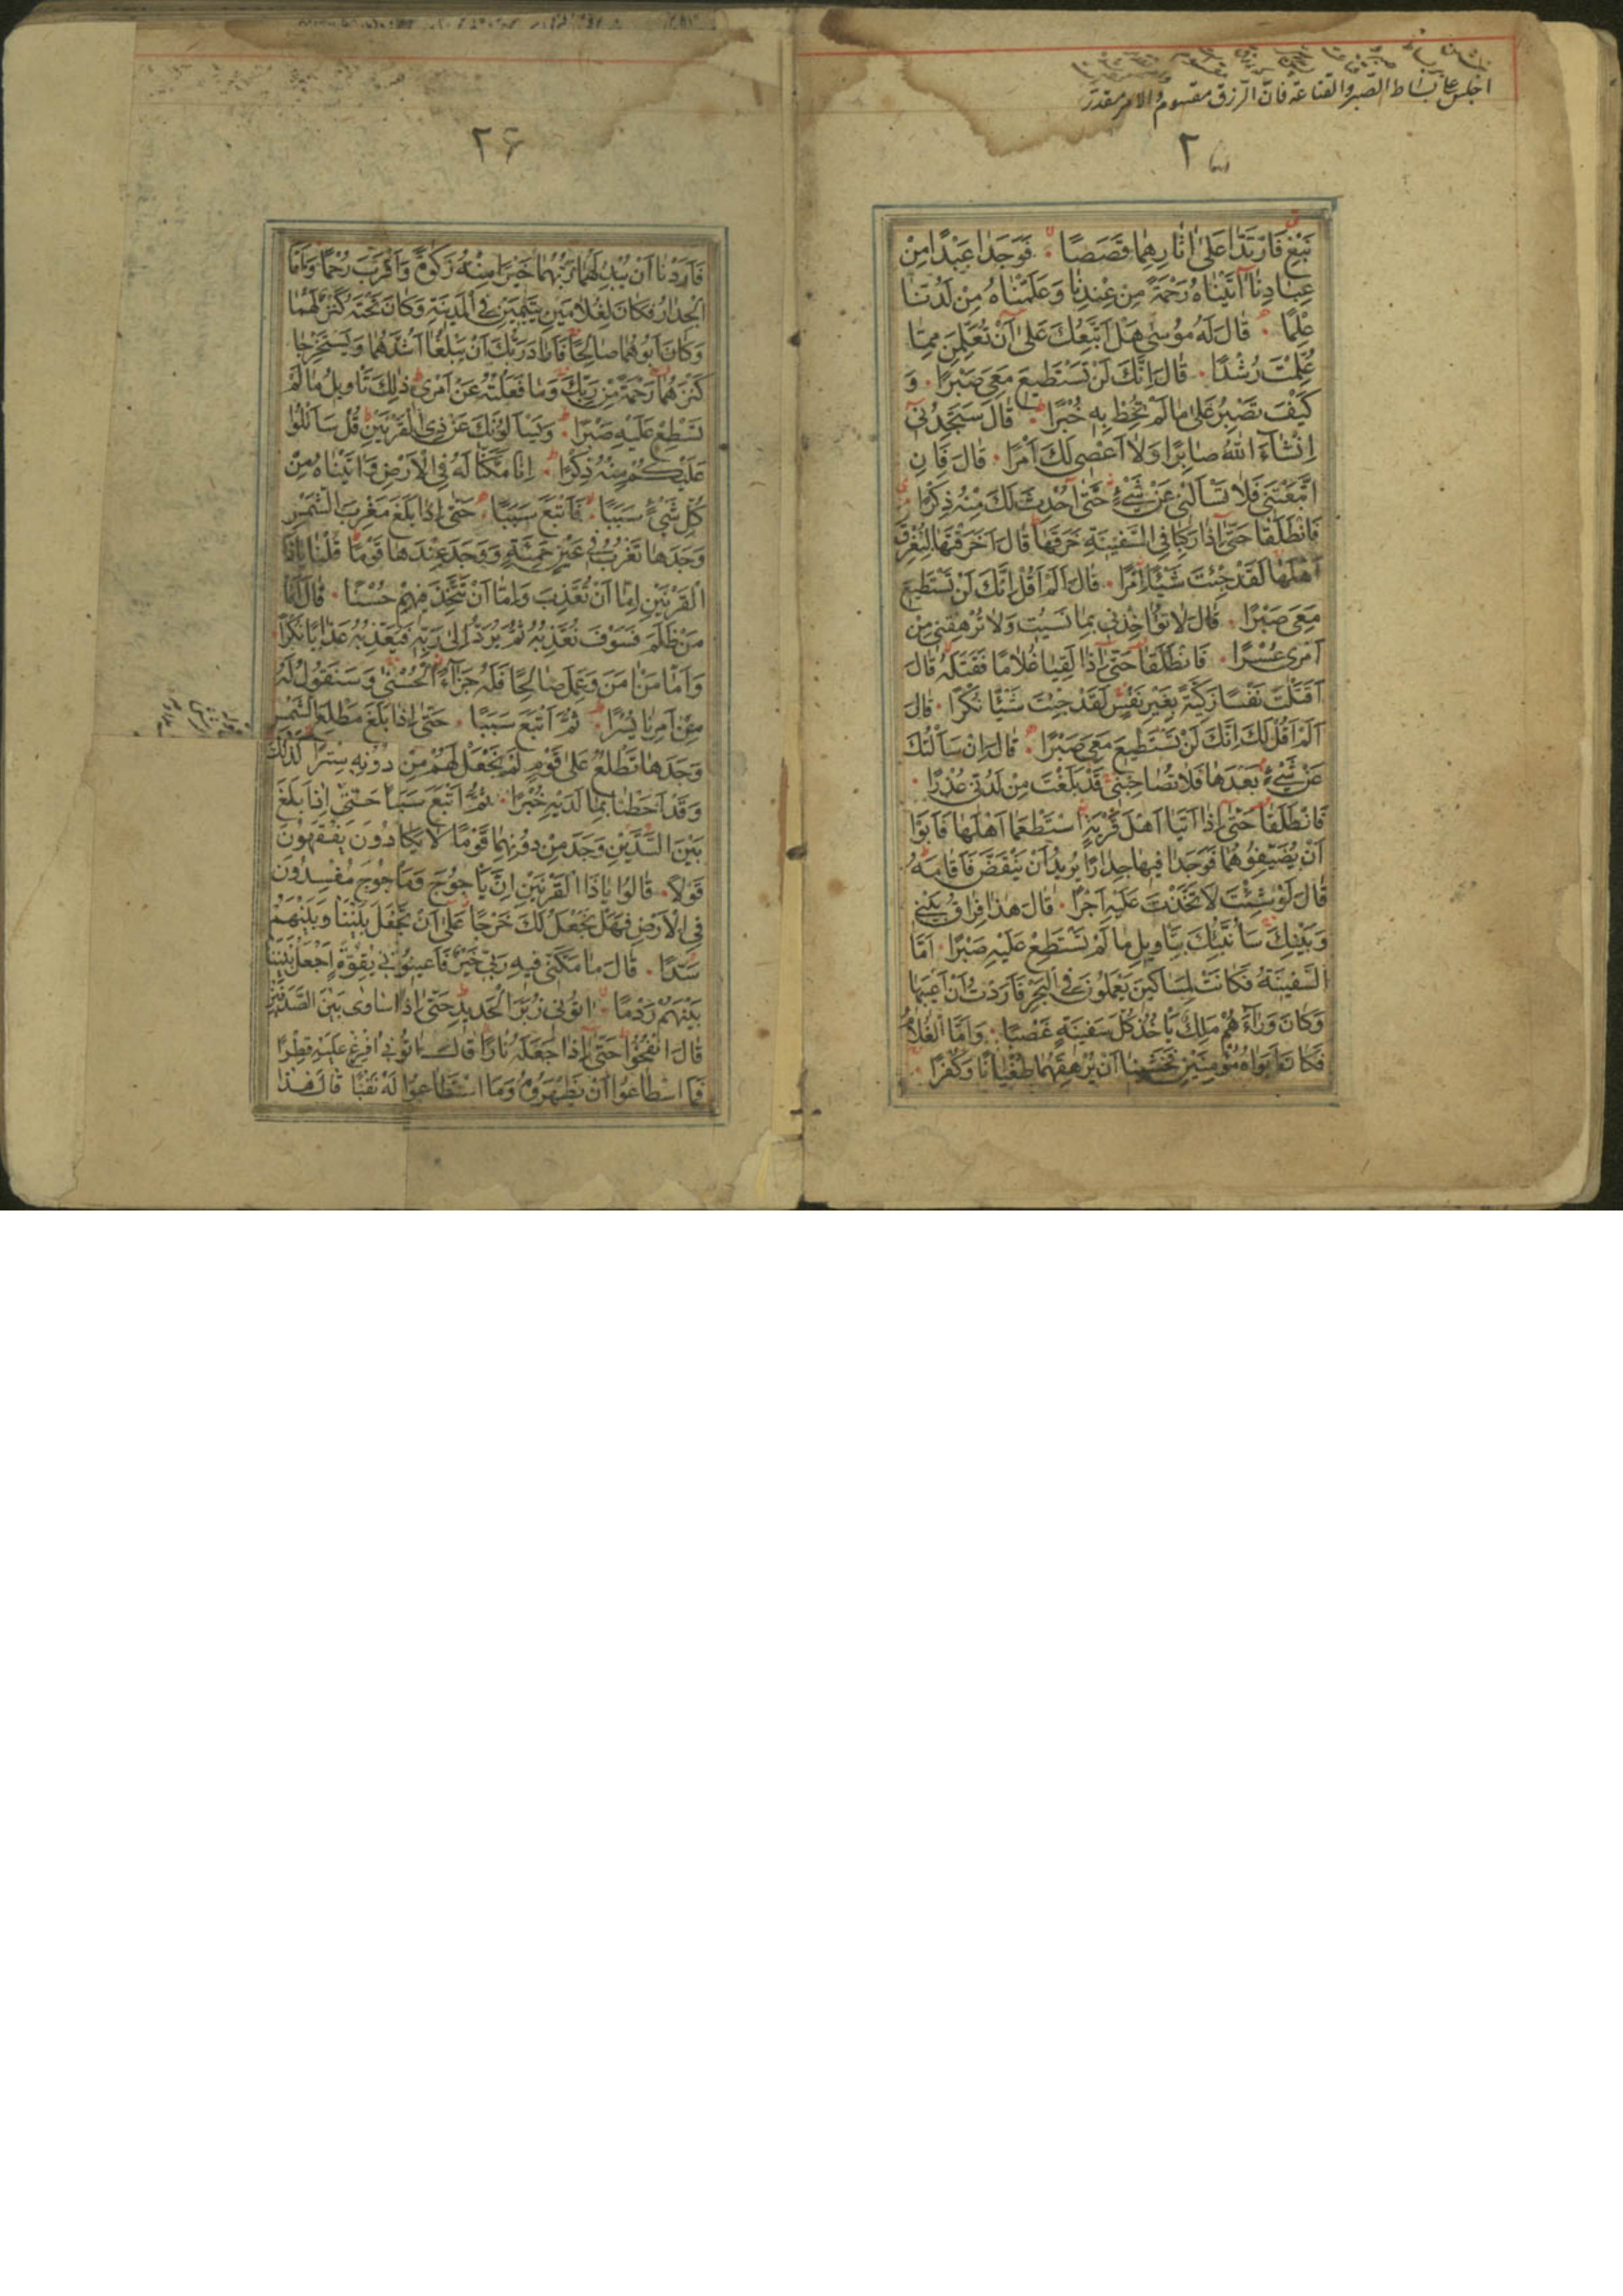 اجلس على بساط الصبر والقناعة فان الرزق مقسوم والامر مقدر
۲۵
نَبْغِ فَارْتَدَّا عَلىٰ اٰثَارِهِمَا قَصَصًا فَوَجَدَا عَبْدًا مِنْ
عِبَادِنَا اٰتَيْنَاهُ رَحْمَةً مِنْ عِنْدِنَا وَعَلَّمْنَاهُ مِنْ لَدُنَّا
عِلْمًا قَالَ لَهُ مُوسىٰ هَلْ اَتَّبِعُكَ عَلىٰ اَنْ تُعَلِّمَنِ مِمَّا
عُلِّمْتَ رُشْدًا قَالَ اِنَّكَ لَنْ تَسْتَطِيعَ مَعِيَ صَبْرًا وَ
كَيْفَ تَصْبِرُ عَلىٰ مَا لَمْ تُحِطْ بِهِ خُبْرًا قَالَ سَتَجِدُنِي
اِنْشَآءَ اللهُ صَابِرًا وَلَا اَعْصِي لَكَ اَمْرًا قَالَ فَاِنِ
اتَّبَعْتَنِي فَلَا تَسْاَلْنِي عَنْ شَيْءٍ حَتّىٰ اُحْدِثَ لَكَ مِنْهُ ذِكْرًا
فَانْطَلَقَا حَتّىٰ اِذَا رَكِبَا فِي السَّفِينَةِ خَرَقَهَا قَالَ اَخَرَقْتَهَا لِتُغْرِقَ
اَهْلَهَا لَقَدْ جِئْتَ شَيْئًا اِمْرًا قَالَ اَلَمْ اَقُلْ اِنَّكَ لَنْ تَسْتَطِيعَ
مَعِيَ صَبْرًا قَالَ لَا تُؤَاخِذْنِي بِمَا نَسِيتُ وَلَا تُرْهِقْنِي مِنْ
اَمْرِي عُسْرًا فَانْطَلَقَا حَتّىٰ اِذَا لَقِيَا غُلَامًا فَقَتَلَهُ قَالَ
اَقَتَلْتَ نَفْسًا زَكِيَّةً بِغَيْرِ نَفْسٍ لَقَدْ جِئْتَ شَيْئًا نُكْرًا قَالَ
اَلَمْ اَقُلْ لَكَ اِنَّكَ لَنْ تَسْتَطِيعَ مَعِيَ صَبْرًا قَالَ اِنْ سَاَلْتُكَ
عَنْ شَيْءٍ بَعْدَهَا فَلَا تُصَاحِبْنِي قَدْ بَلَغْتَ مِنْ لَدُنِّي عُذْرًا
فَانْطَلَقَا حَتّىٰ اِذَا اَتَيَا اَهْلَ قَرْيَةٍ اسْتَطْعَمَا اَهْلَهَا فَاَبَوْا
اَنْ يُضَيِّفُوهُمَا فَوَجَدَا فِيهَا جِدَارًا يُرِيدُ اَنْ يَنْقَضَّ فَاَقَامَهُ
قَالَ لَوْ شِئْتَ لَاتَّخَذْتَ عَلَيْهِ اَجْرًا قَالَ هٰذَا فِرَاقُ بَيْنِي
وَبَيْنِكَ سَاُنَبِّئُكَ بِتَاْوِيلِ مَا لَمْ تَسْتَطِعْ عَلَيْهِ صَبْرًا اَمَّا
السَّفِينَةُ فَكَانَتْ لِمَسَاكِينَ يَعْمَلُونَ فِي الْبَحْرِ فَاَرَدْتُ اَنْ اَعِيبَهَا
وَكَانَ وَرَآءَهُمْ مَلِكٌ يَاْخُذُ كُلَّ سَفِينَةٍ غَصْبًا وَاَمَّا الْغُلَامُ
فَكَانَ اَبَوَاهُ مُؤْمِنَيْنِ فَخَشِينَا اَنْ يُرْهِقَهُمَا طُغْيَانًا وَكُفْرًا
۲۶
فَاَرَدْنَا اَنْ يُبْدِلَهُمَا رَبُّهُمَا خَيْرًا مِنْهُ زَكٰوةً وَاَقْرَبَ رُحْمًا وَاَمَّا
الْجِدَارُ فَكَانَ لِغُلَامَيْنِ يَتِيمَيْنِ فِي الْمَدِينَةِ وَكَانَ تَحْتَهُ كَنْزٌ لَهُمَا
وَكَانَ اَبُوهُمَا صَالِحًا فَاَرَادَ رَبُّكَ اَنْ يَبْلُغَا اَشُدَّهُمَا وَيَسْتَخْرِجَا
كَنْزَهُمَا رَحْمَةً مِنْ رَبِّكَ وَمَا فَعَلْتُهُ عَنْ اَمْرِي ذٰلِكَ تَاْوِيلُ مَا لَمْ
تَسْطِعْ عَلَيْهِ صَبْرًا وَيَسْاَلُونَكَ عَنْ ذِي الْقَرْنَيْنِ قُلْ سَاَتْلُوا
عَلَيْكُمْ مِنْهُ ذِكْرًا اِنَّا مَكَّنَّا لَهُ فِي الْاَرْضِ وَاٰتَيْنَاهُ مِنْ
كُلِّ شَيْءٍ سَبَبًا فَاَتْبَعَ سَبَبًا حَتّىٰ اِذَا بَلَغَ مَغْرِبَ الشَّمْسِ
وَجَدَهَا تَغْرُبُ فِي عَيْنٍ حَمِئَةٍ وَوَجَدَ عِنْدَهَا قَوْمًا قُلْنَا يَاذَا
الْقَرْنَيْنِ اِمَّا اَنْ تُعَذِّبَ وَاِمَّا اَنْ تَتَّخِذَ فِيهِمْ حُسْنًا قَالَ اَمَّا
مَنْ ظَلَمَ فَسَوْفَ نُعَذِّبُهُ ثُمَّ يُرَدُّ اِلىٰ رَبِّهِ فَيُعَذِّبُهُ عَذَابًا نُكْرًا
وَاَمَّا مَنْ اٰمَنَ وَعَمِلَ صَالِحًا فَلَهُ جَزَآءً الْحُسْنىٰ وَسَنَقُولُ لَهُ
مِنْ اَمْرِنَا يُسْرًا ثُمَّ اَتْبَعَ سَبَبًا حَتّىٰ اِذَا بَلَغَ مَطْلِعَ الشَّمْسِ
وَجَدَهَا تَطْلُعُ عَلىٰ قَوْمٍ لَمْ نَجْعَلْ لَهُمْ مِنْ دُونِهِ سِتْرًا كَذٰلِكَ
وَقَدْ اَحَطْنَا بِمَا لَدَيْهِ خُبْرًا ثُمَّ اَتْبَعَ سَبَبًا حَتّىٰ اِذَا بَلَغَ
بَيْنَ السَّدَّيْنِ وَجَدَ مِنْ دُونِهِمَا قَوْمًا لَا يَكَادُونَ يَفْقَهُونَ
قَوْلًا قَالُوا يَاذَا الْقَرْنَيْنِ اِنَّ يَاْجُوجَ وَمَاْجُوجَ مُفْسِدُونَ
فِي الْاَرْضِ فَهَلْ نَجْعَلُ لَكَ خَرْجًا عَلىٰ اَنْ تَجْعَلَ بَيْنَنَا وَبَيْنَهُمْ
سَدًّا قَالَ مَا مَكَّنِّي فِيهِ رَبِّي خَيْرٌ فَاَعِينُونِي بِقُوَّةٍ اَجْعَلْ بَيْنَنَا
بَيْنَهُمْ رَدْمًا اٰتُونِي زُبَرَ الْحَدِيدِ حَتّىٰ اِذَا سَاوىٰ بَيْنَ الصَّدَفَيْنِ
قَالَ انْفُخُوا حَتّىٰ اِذَا جَعَلَهُ نَارًا قَالَ اٰتُونِي اُفْرِغْ عَلَيْهِ قِطْرًا
فَمَا اسْطَاعُوا اَنْ يَظْهَرُوهُ وَمَا اسْتَطَاعُوا لَهُ نَقْبًا قَالَ هٰذَا